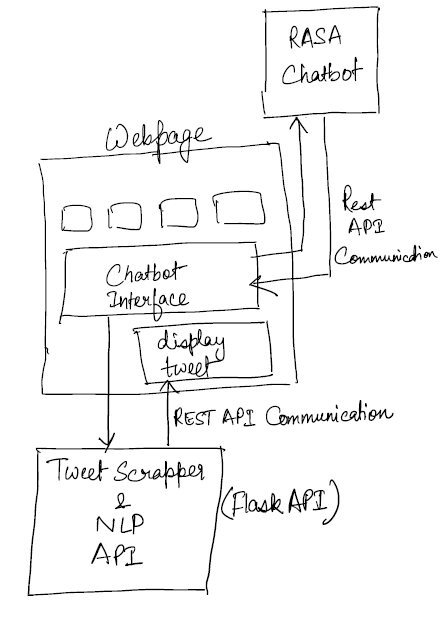 RASA
Chatbot
Webpage
Rest
API
Communication
Chatbot
Interface
display
tweet
REST API Communication
Tweet Scrapper
&
NLP
API
(Flask API)